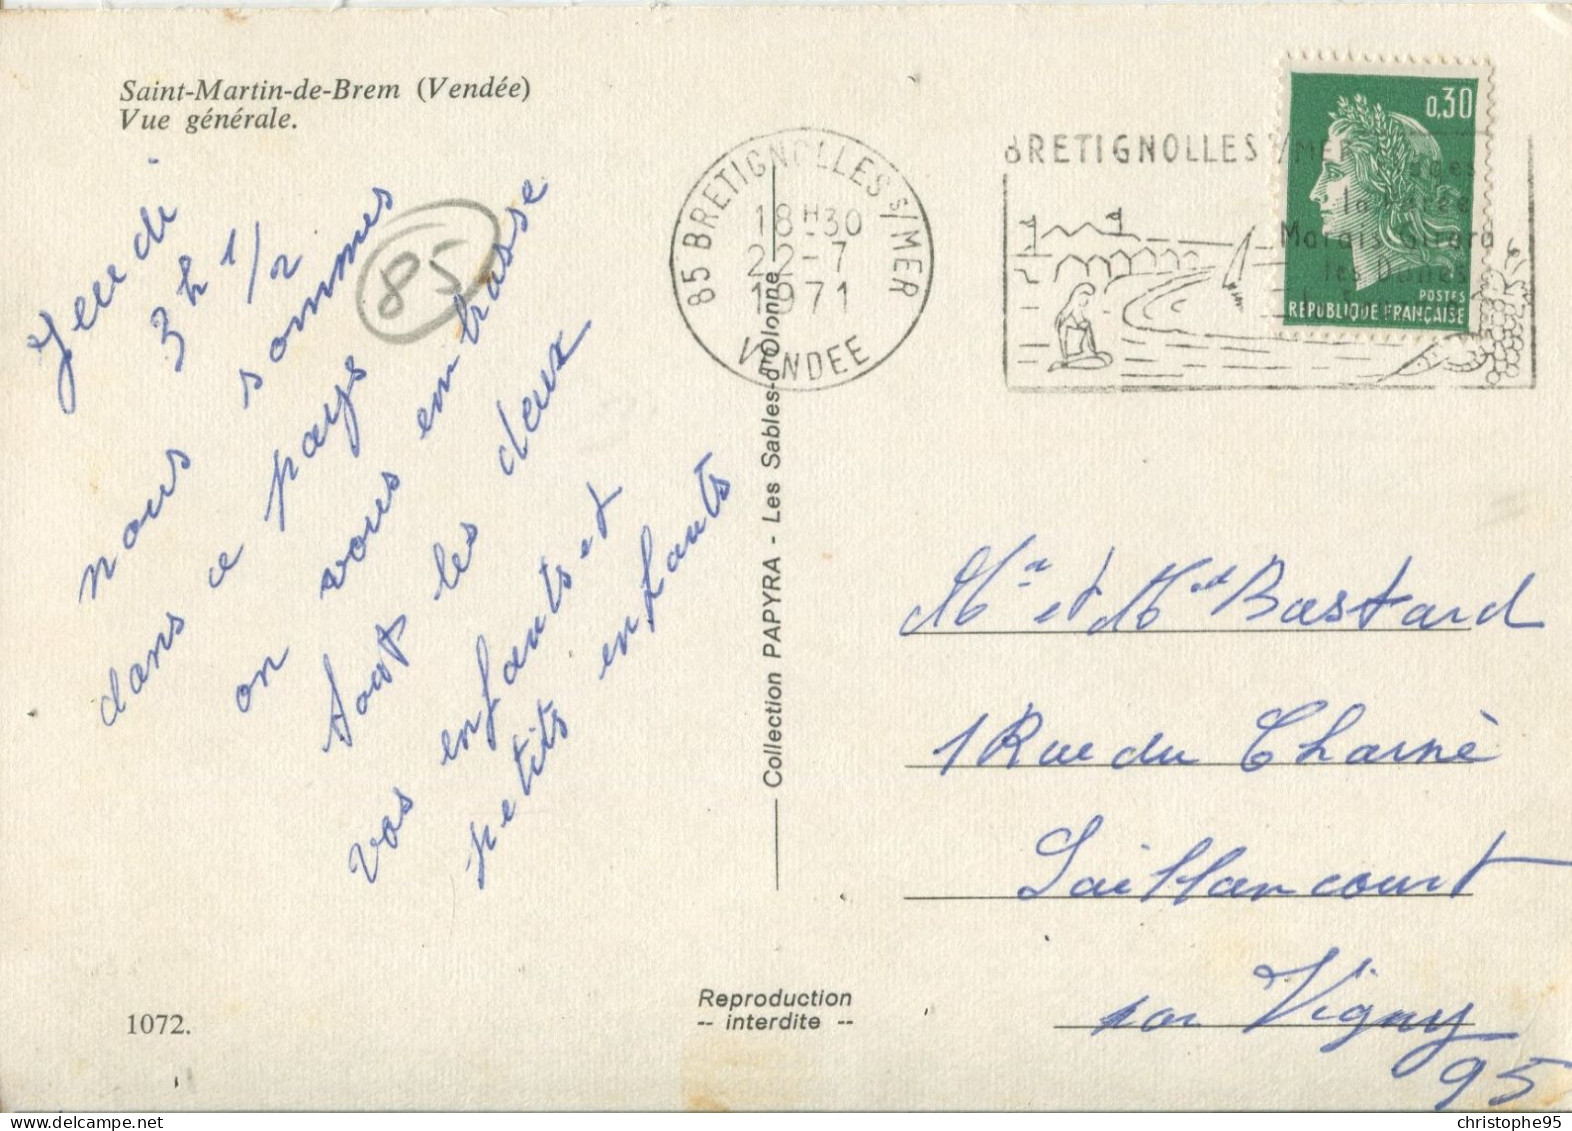 Saint-Martin-de-Brem (Vendée)
Vue générale.
Jeudi
3h 1/2
nous sommes
dans ce pays
on vous embrasse
tout les deux
vos enfants et
petits enfants
85
1072.
Collection PAPYRA - Les Sables-d'Olonne
Reproduction
-- interdite --
85 BRETIGNOLLES S/MER
18H30
22-7
1971
VENDEE
BRETIGNOLLES S/MER
Marais Girard
les Dunes
0,30
POSTES
REPUBLIQUE FRANÇAISE
Mr et Md Bastard
1 Rue du Charnè
Saillancourt
par Vigny
95
christophe95